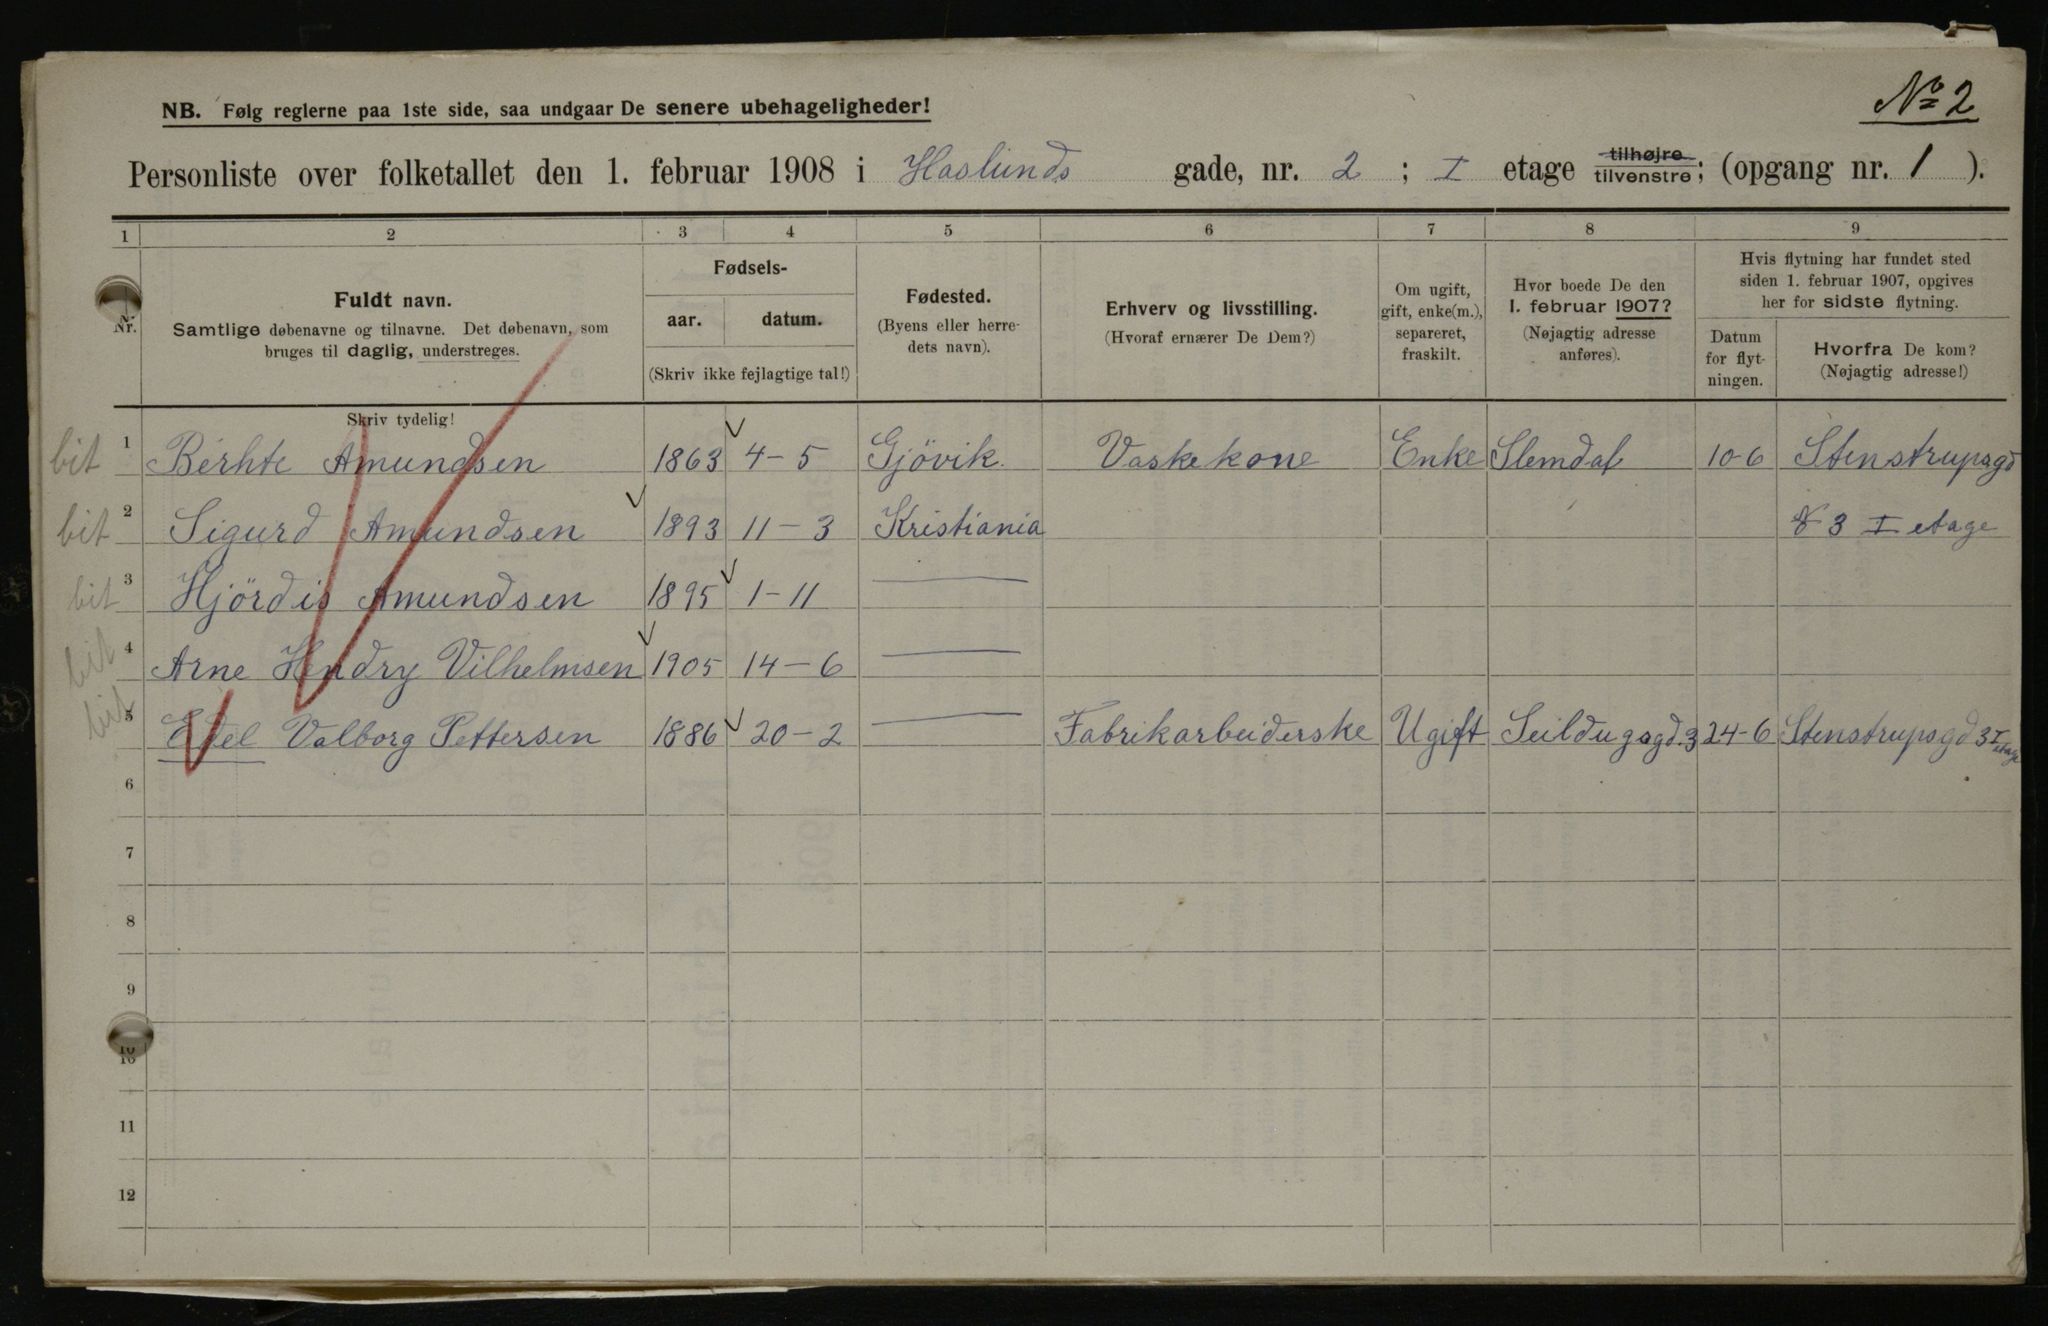 No 2
NB. Følg reglerne paa 1ste side, saa undgaar De senere ubehageligheder!
Personliste over folketallet den 1. februar 1908 i Haslunds gade, nr. 2 ; I etage tilhøjre tilvenstre ; (opgang nr. 1 ).
1 2 3 4 5 6 7 8 9
Nr.
Fuldt navn.
Samtlige døbenavne og tilnavne. Det døbenavn, som
bruges til daglig, understreges.
Skriv tydelig!
Fødsels-
aar. datum.
(Skriv ikke fejlagtige tal!)
Fødested.
(Byens eller herre-
dets navn).
Erhverv og livsstilling.
(Hvoraf ernærer De Dem?)
Om ugift,
gift, enke(m.),
separeret,
fraskilt.
Hvor boede De den
1. februar 1907?
(Nøjagtig adresse
anføres).
Hvis flytning har fundet sted
siden 1. februar 1907, opgives
her for sidste flytning.
Datum
for flyt-
ningen.
Hvorfra De kom?
(Nøjagtig adresse!)
bit 1 Berhte Amundsen 1863 4-5 Gjövik. Vaskekone Enke Slemdal 10-6 Stenstrupsgd
bit 2 Sigurd Amundsen 1893 11-3 Kristiania 3 I etage
bit 3 Hjördis Amundsen 1895 1-11 —
bit 4 Arne Hendry Vilhelmsen 1905 14-6 —
bit 5 Edel Valborg Pettersen 1886 20-2 — Fabrikarbeiderske Ugift Seildugsgd. 3 24-6 Stenstrupsgd 3 I etage
6
7
8
9
10
11
12